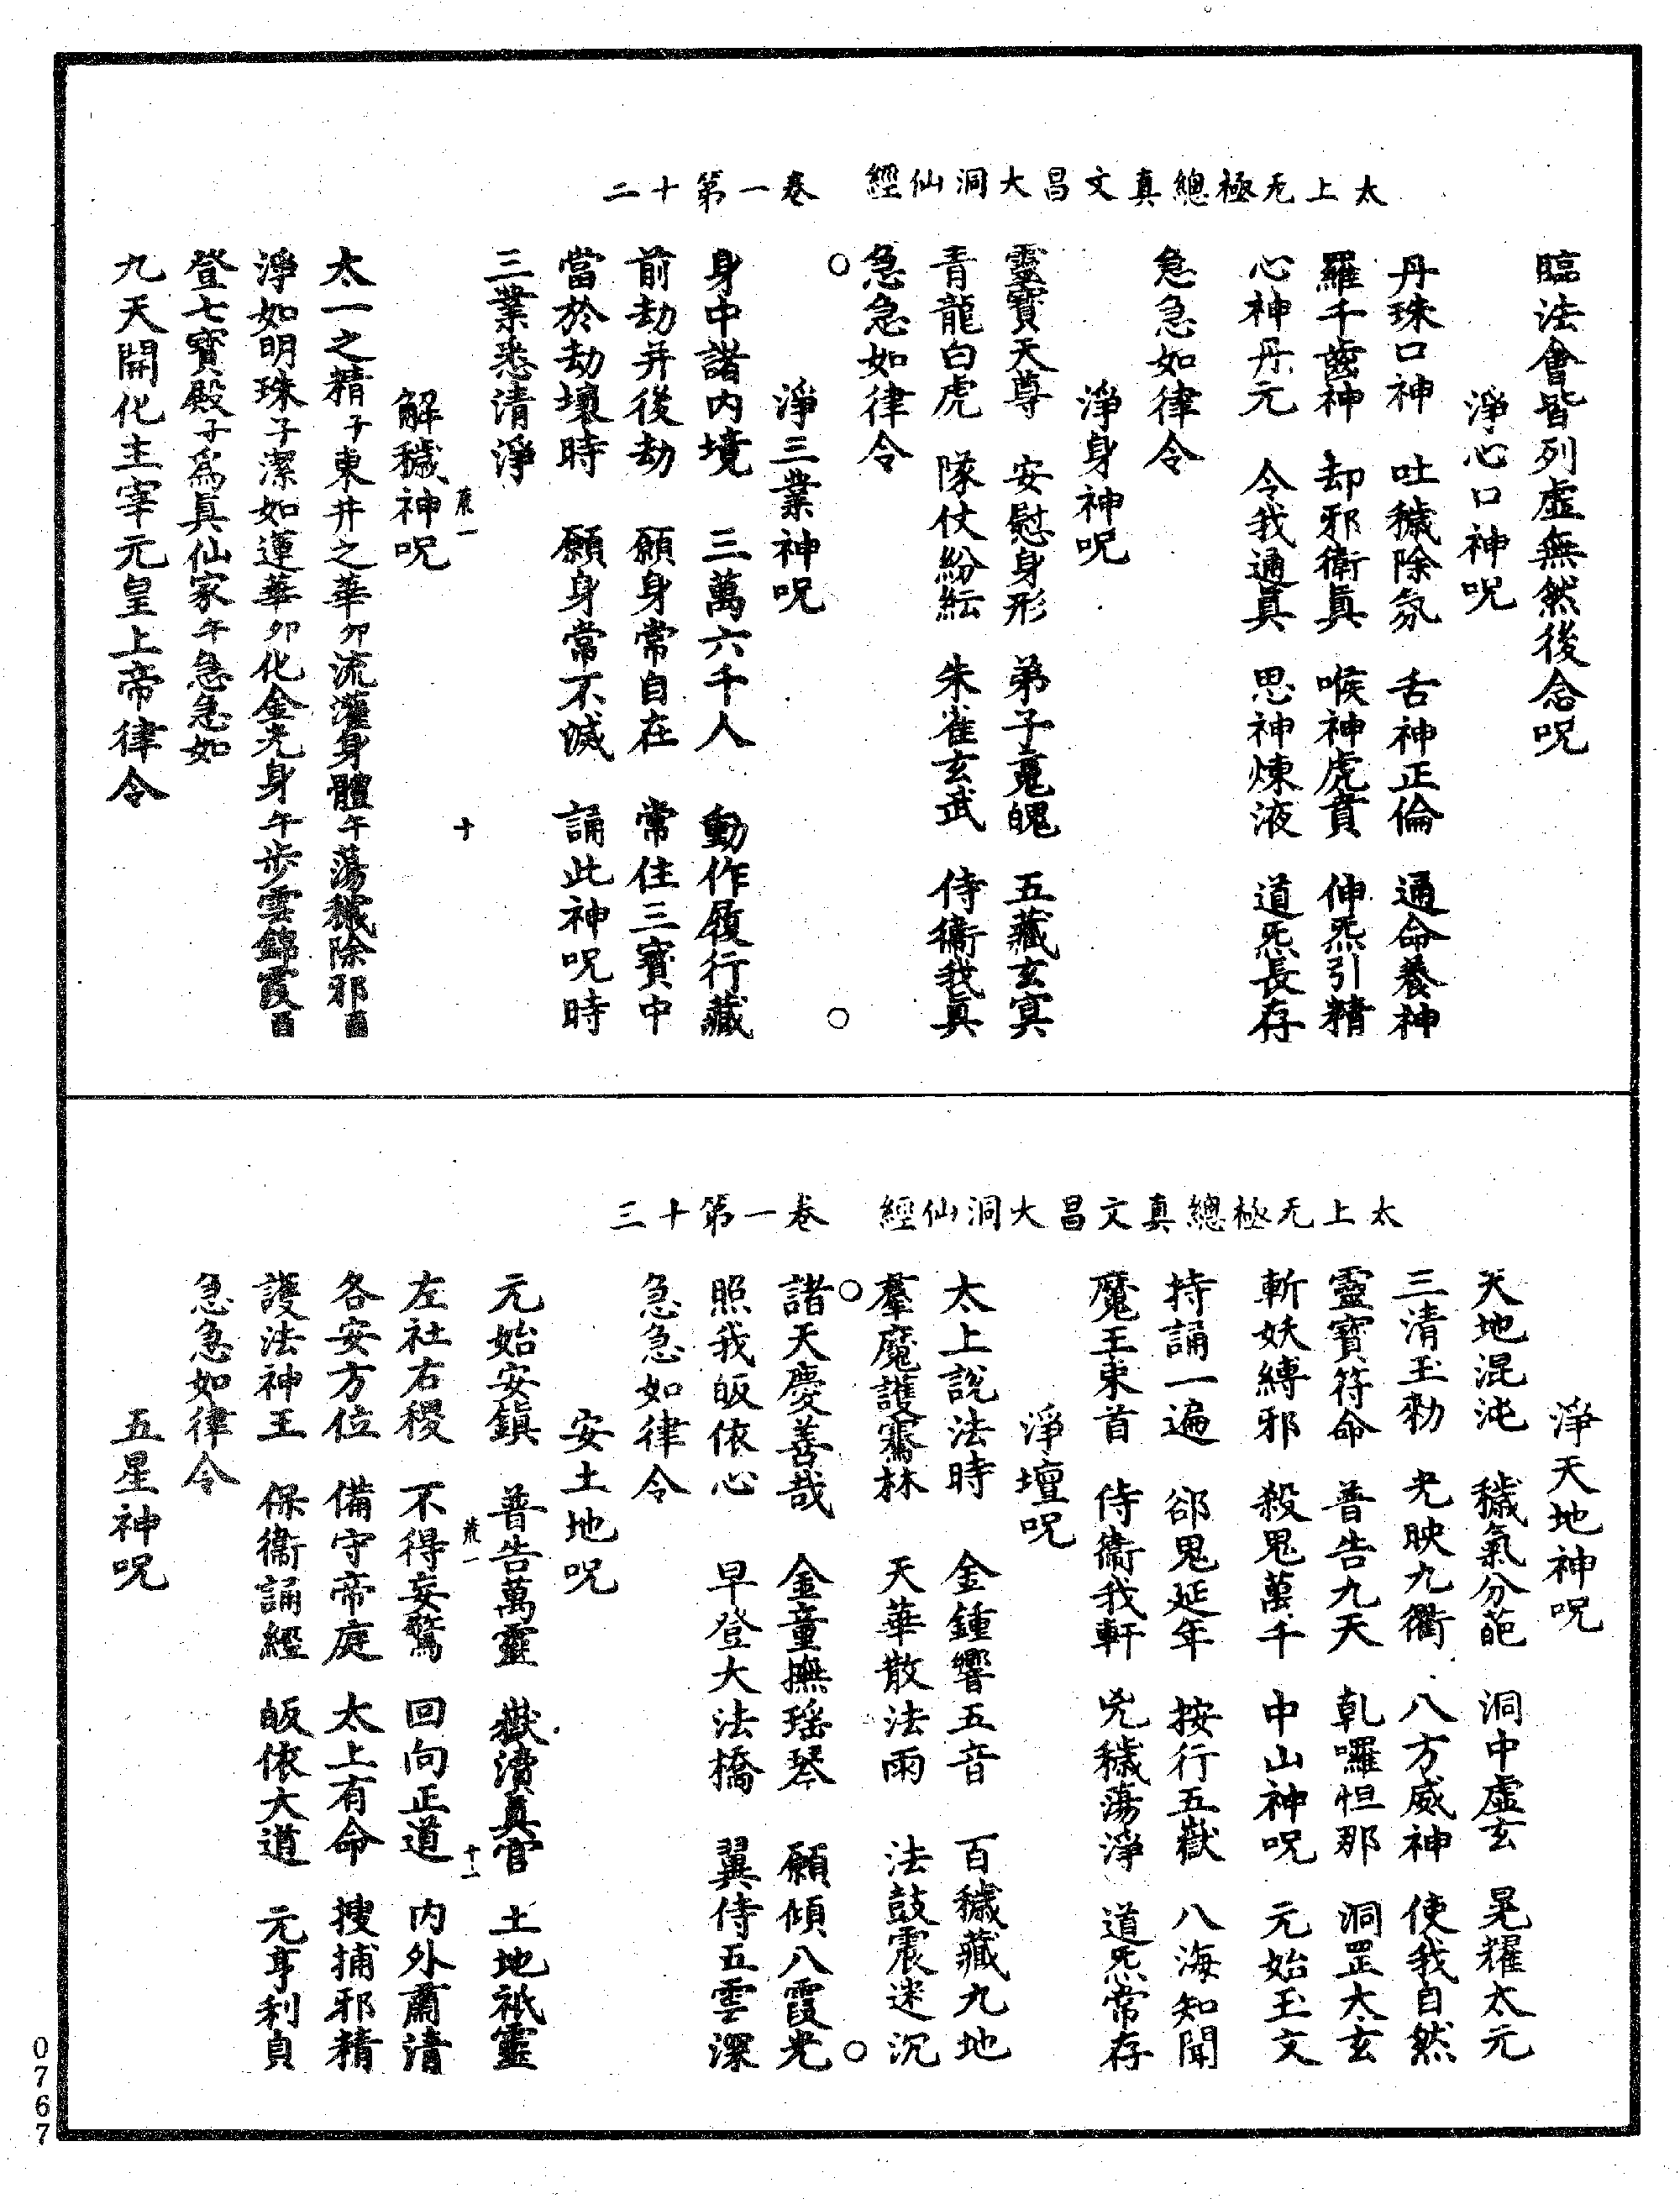 太上无極總真文昌大洞仙經 卷一第十二
臨法會皆列虛無然後念呪
淨心口神呪
丹珠口神 吐穢除氛 舌神正倫 通命養神
羅千齒神 却邪衛眞 喉神虎賁 伸炁引精
心神丹元 令我通眞 思神煉液 道炁長存
急急如律令
淨身神呪
靈寶天尊 安慰身形 弟子䰟魄 五藏玄冥
青龍白虎 隊仗紛紜 朱雀玄武 侍衞我眞
急急如律令
淨三業神呪
身中諸內境 三萬六千人 動作履行藏
前劫并後劫 願身常自在 常住三寶中
當於劫壞時 願身常不滅 誦此神呪時
三業悉清淨
荒一 十
解穢神呪
太一之精子東井之華卯流灌身體午蕩穢除邪酉
淨如明珠子潔如運華卯化金光身午步雲錦霞酉
登七寶殿子爲眞仙家午急急如
九天開化主宰元皇上帝律令
太上无極總真文昌大洞仙經 卷一第十三
淨天地神呪
天地混沌 穢氣分葩 洞中虛玄 晃耀太元
三清玉勑 光映九衢 八方威神 使我自然
靈寶符命 普告九天 乹囉怛那 洞罡太玄
斬妖縛邪 殺鬼萬千 中山神呪 元始玉文
持誦一遍 郤鬼延年 按行五嶽 八海知聞
魔王束首 侍衞我軒 兇穢蕩淨 道炁常存
淨壇呪
太上說法時 金鍾響五音 百穢藏九地
羣魔護騫林 天華散法雨 法鼓震迷沉
諸天慶善哉 金童撫瑤琴 願傾八霞光
照我皈依心 早登大法橋 翼侍五雲深
急急如律令
安土地呪
元始安鎮 普告萬靈 嶽瀆真官 土地祇靈
荒一 十一
左社右稷 不得妄驚 回向正道 內外肅清
各安方位 備守帝庭 太上有命 搜捕邪精
護法神王 保衞誦經 皈依大道 元亨利貞
急急如律令
五星神呪
0767